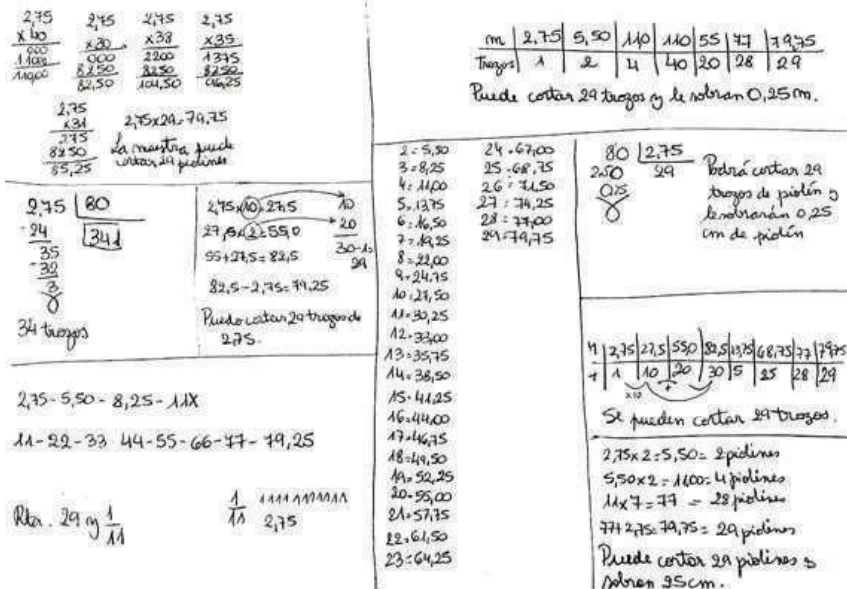 2,75
x 40
000
1100
110,00
2,75
x30
000
8250
82,50
2,75
x38
2200
8250
104,50
2,75
x35
1375
8250
96,25
2,75
x31
275
8250
85,25
2,75x29=79,75
La maestra puede
cortar 29 piolines
m 2,75 5,50 110 110 55 77 79,75
Trozos 1 2 4 40 20 28 29
Puede cortar 29 trozos y le sobran 0,25 m.
2,75 80
-24 341
35
-32
3
0
34 trozos
2,75x10=27,5 10
27,5x2=55,0 20
55+27,5=82,5 30-1=
29
82,5-2,75=79,25
Puedo cortar 29 trozos de
2,75.
2=5,50
3=8,25
4=11,00
5=13,75
6=16,50
7=19,25
8=22,00
9=24,75
10=27,50
11=30,25
12=33,00
13=35,75
14=38,50
15=41,25
16=44,00
17=46,75
18=49,50
19=52,25
20=55,00
21=57,75
22=61,50
23=64,25
24=67,00
25=68,75
26=71,50
27=74,25
28=77,00
29=79,75
80 2,75
250 29
025
0
Podrá cortar 29
trozos de piolín y
le sobrarán 0,25
cm de piolín
2,75 27,5 55,0 82,5 13,75 68,75 77 79,75
t 1 10 20 30 5 25 28 29
x10 +
Se pueden cortar 29 trozos.
2,75-5,50-8,25-11X
11-22-33 44-55-66-77-79,25
Rta. 29 y 1/11
1/11 11111111111
2,75
2,75x2=5,50= 2 piolines
5,50x2=11,00=4 piolines
11x7=77 = 28 piolines
77+2,75=79,75= 29 piolines
Puede cortar 29 piolines y
sobran 25cm.